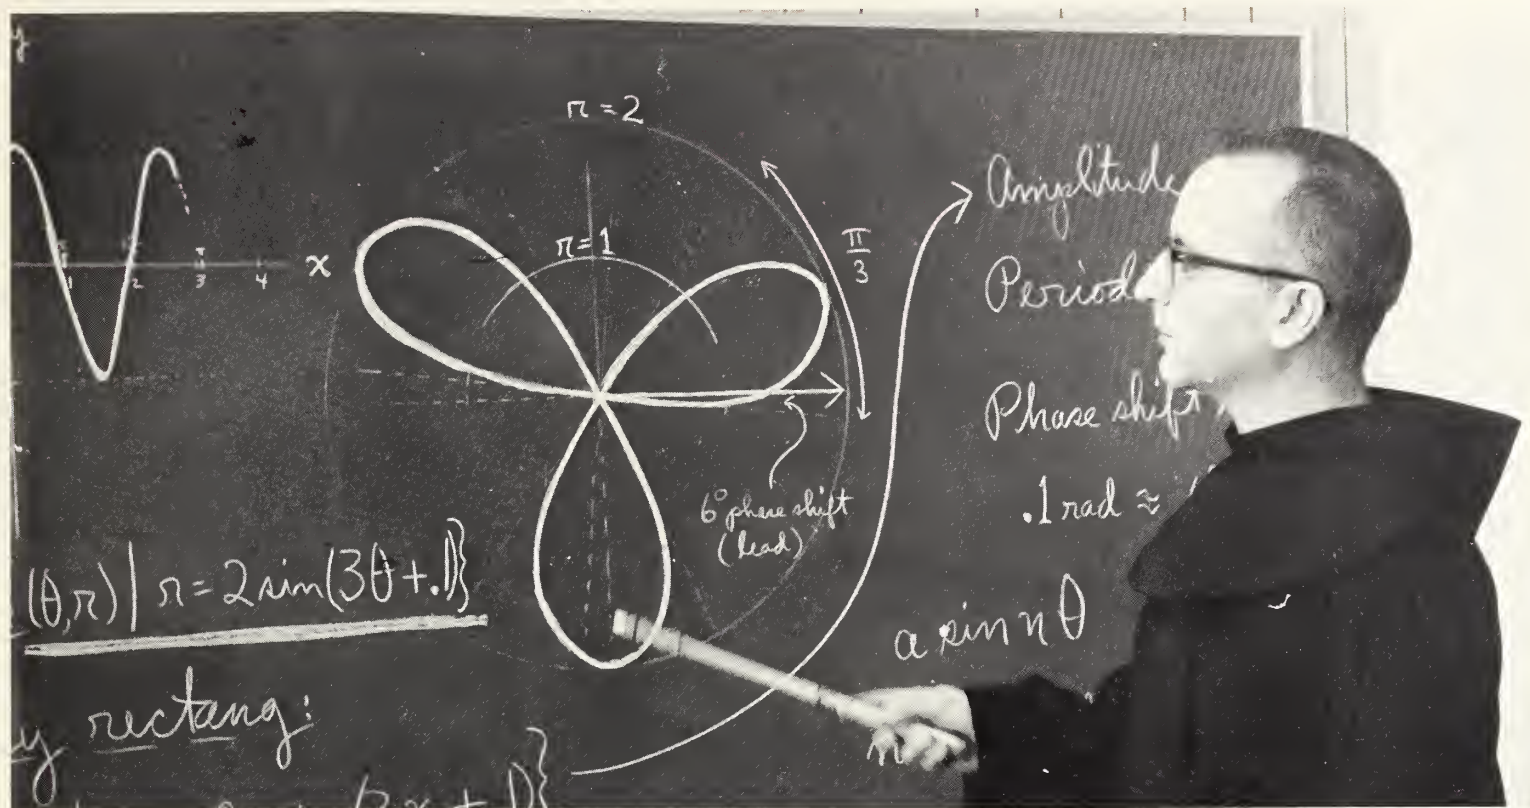 y
x
1 2 3 4
r = 2
r = 1
π
3
6° phase shift
(lead)
(θ,r) | r = 2 sin(3θ + .1)}
y rectang:
Amplitude
Period
Phase shift
.1 rad ≈
a sin n θ
n